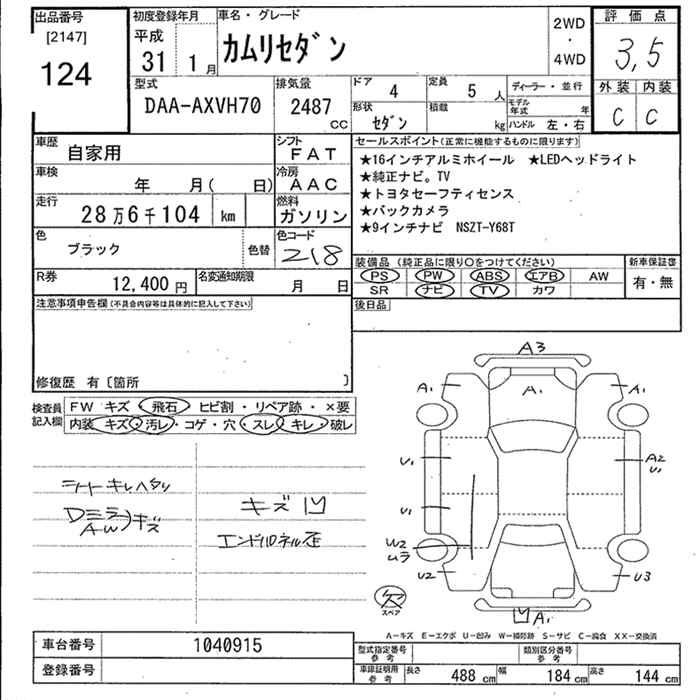 出品番号
[2147]
124
初度登録年月
平成
31 1月
車名・グレード
カムリセダン
2WD
・
4WD
評価点
3,5
外装 内装
C C
型式
DAA-AXVH70
排気量
2487
CC
ドア 4
定員 5 人
ディーラー・並行
モデル年式 年
形状 セダン
積載 kg
ハンドル 左・右
車歴 自家用
シフト FAT
車検 年 月( 日)
冷房 AAC
走行 28万6千104 km
燃料 ガソリン
色 ブラック
色替
色コード 218
R券 12,400円
名変通知期限 月 日
セールスポイント(正常に機能するものに限ります)
★16インチアルミホイール ★LEDヘッドライト
★純正ナビ。TV
★トヨタセーフティセンス
★バックカメラ
★9インチナビ NSZT-Y68T
装備品(純正品に限り○をつけてください)
新車保証書
PS PW ABS エアB AW
有・無
SR ナビ TV カワ
後日品
注意事項申告欄(不具合内容等は具体的に記入して下さい)
修復歴 有〔箇所 〕
検査員記入欄
FW キズ・飛石・ヒビ割・リペア跡・×要
内装 キズ・汚レ・コゲ・穴・スレ・キレ・破レ
シートキレヘタリ
Dミラ
AW)キズ
キズ凹
エンドパネル歪
A3
A1 A1 A1
U1 A2
U1
U1
W2
ムラ
U2 U3
凹A1
欠
スペア
A-キズ E-エクボ U-凹み W-補修跡 S-サビ C-腐食 XX-交換済
車台番号 1040915
登録番号
型式指定番号
参考
類別区分番号
参考
車庫証明用
参考
長さ 488 cm 幅 184 cm 高さ 144 cm